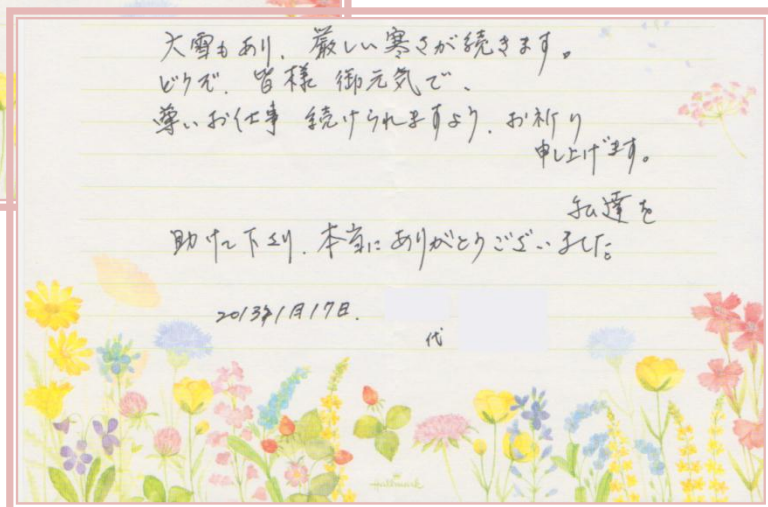 大雪もあり、厳しい寒さが続きます。
どうぞ、皆様 御元気で、
尊いお仕事 続けられますよう、お祈り
申し上げます。
私達を
助けて下さり、本当にありがとうございました。
2013年1月17日.
代
Hallmark